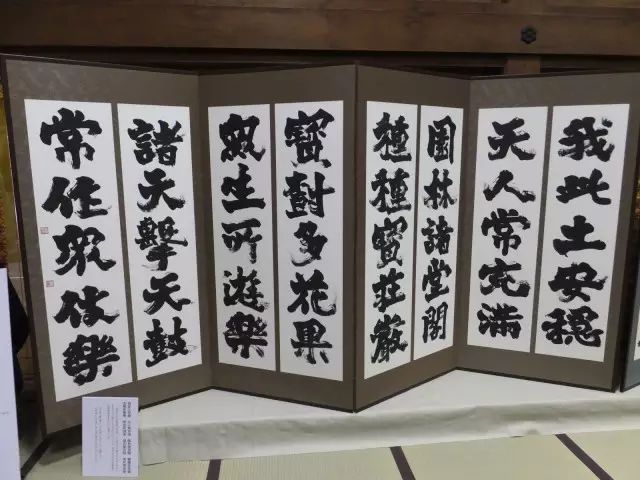 我此土安穏
天人常充満
園林諸堂閣
種種寳荘厳
寳樹多花果
衆生所遊樂
諸天撃天鼓
常作衆伎樂